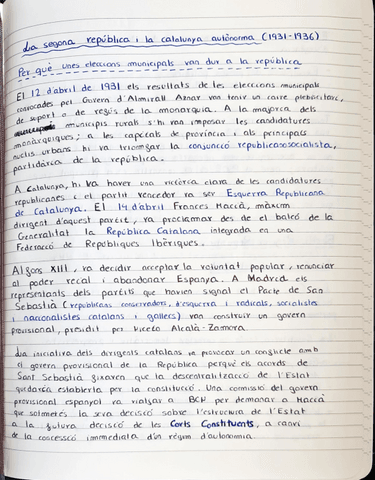 La segona república i la catalunya autònoma (1931-1936)
Per què unes eleccions municipals van dur a la república
El 12 d'abril de 1931 els resultats de les eleccions municipals
convocades per Govern d'Almirall Aznar van tenir un caire plebiscitari,
de suport o de regús de la monarquia. A la majoria dels
municipis rurals s'hi van imposar les candidatures
monàrquiques; a les capitals de província i als principals
nuclis urbans hi va triomfar la conjunció republicanosocialista,
partidària de la república.
A Catalunya, hi va haver una victòria clara de les candidatures
republicanes i el partit vencedor va ser Esquerra Republicana
de Catalunya. El 14 d'abril Frances Macià, màxim
dirigent d'aquest partit, va proclamar des de el balcó de la
Generalitat la República Catalana integrada en una
Federació de Repúbliques Ibèriques.
Alfons XIII, va decidir acceptar la voluntat popular, renunciar
al poder reial i abandonar Espanya. A Madrid els
representants dels partits que havien signat el Pacte de San
Sebastià (republicans conservadors, d'esquerra i radicals, socialistes
i nacionalistes catalans i gallecs) van construir un govern
provisional, presidit per Niceto Alcalà-Zamora.
La iniciativa dels dirigents catalans va provocar un conflicte amb
el govern provisional de la República perquè els acords de
Sant Sebastià fixaren que la descentralització de l'Estat
quedaria establerta per la constitució. Una comissió del govern
provisional espanyol va viatjar a BCN per demanar a Macià
que sotmetés la seva decisió sobre l'estructura de l'Estat
a la futura decisió de les Corts Constituents, a canvi
de la concessió immediata d'un règim d'autonomia.